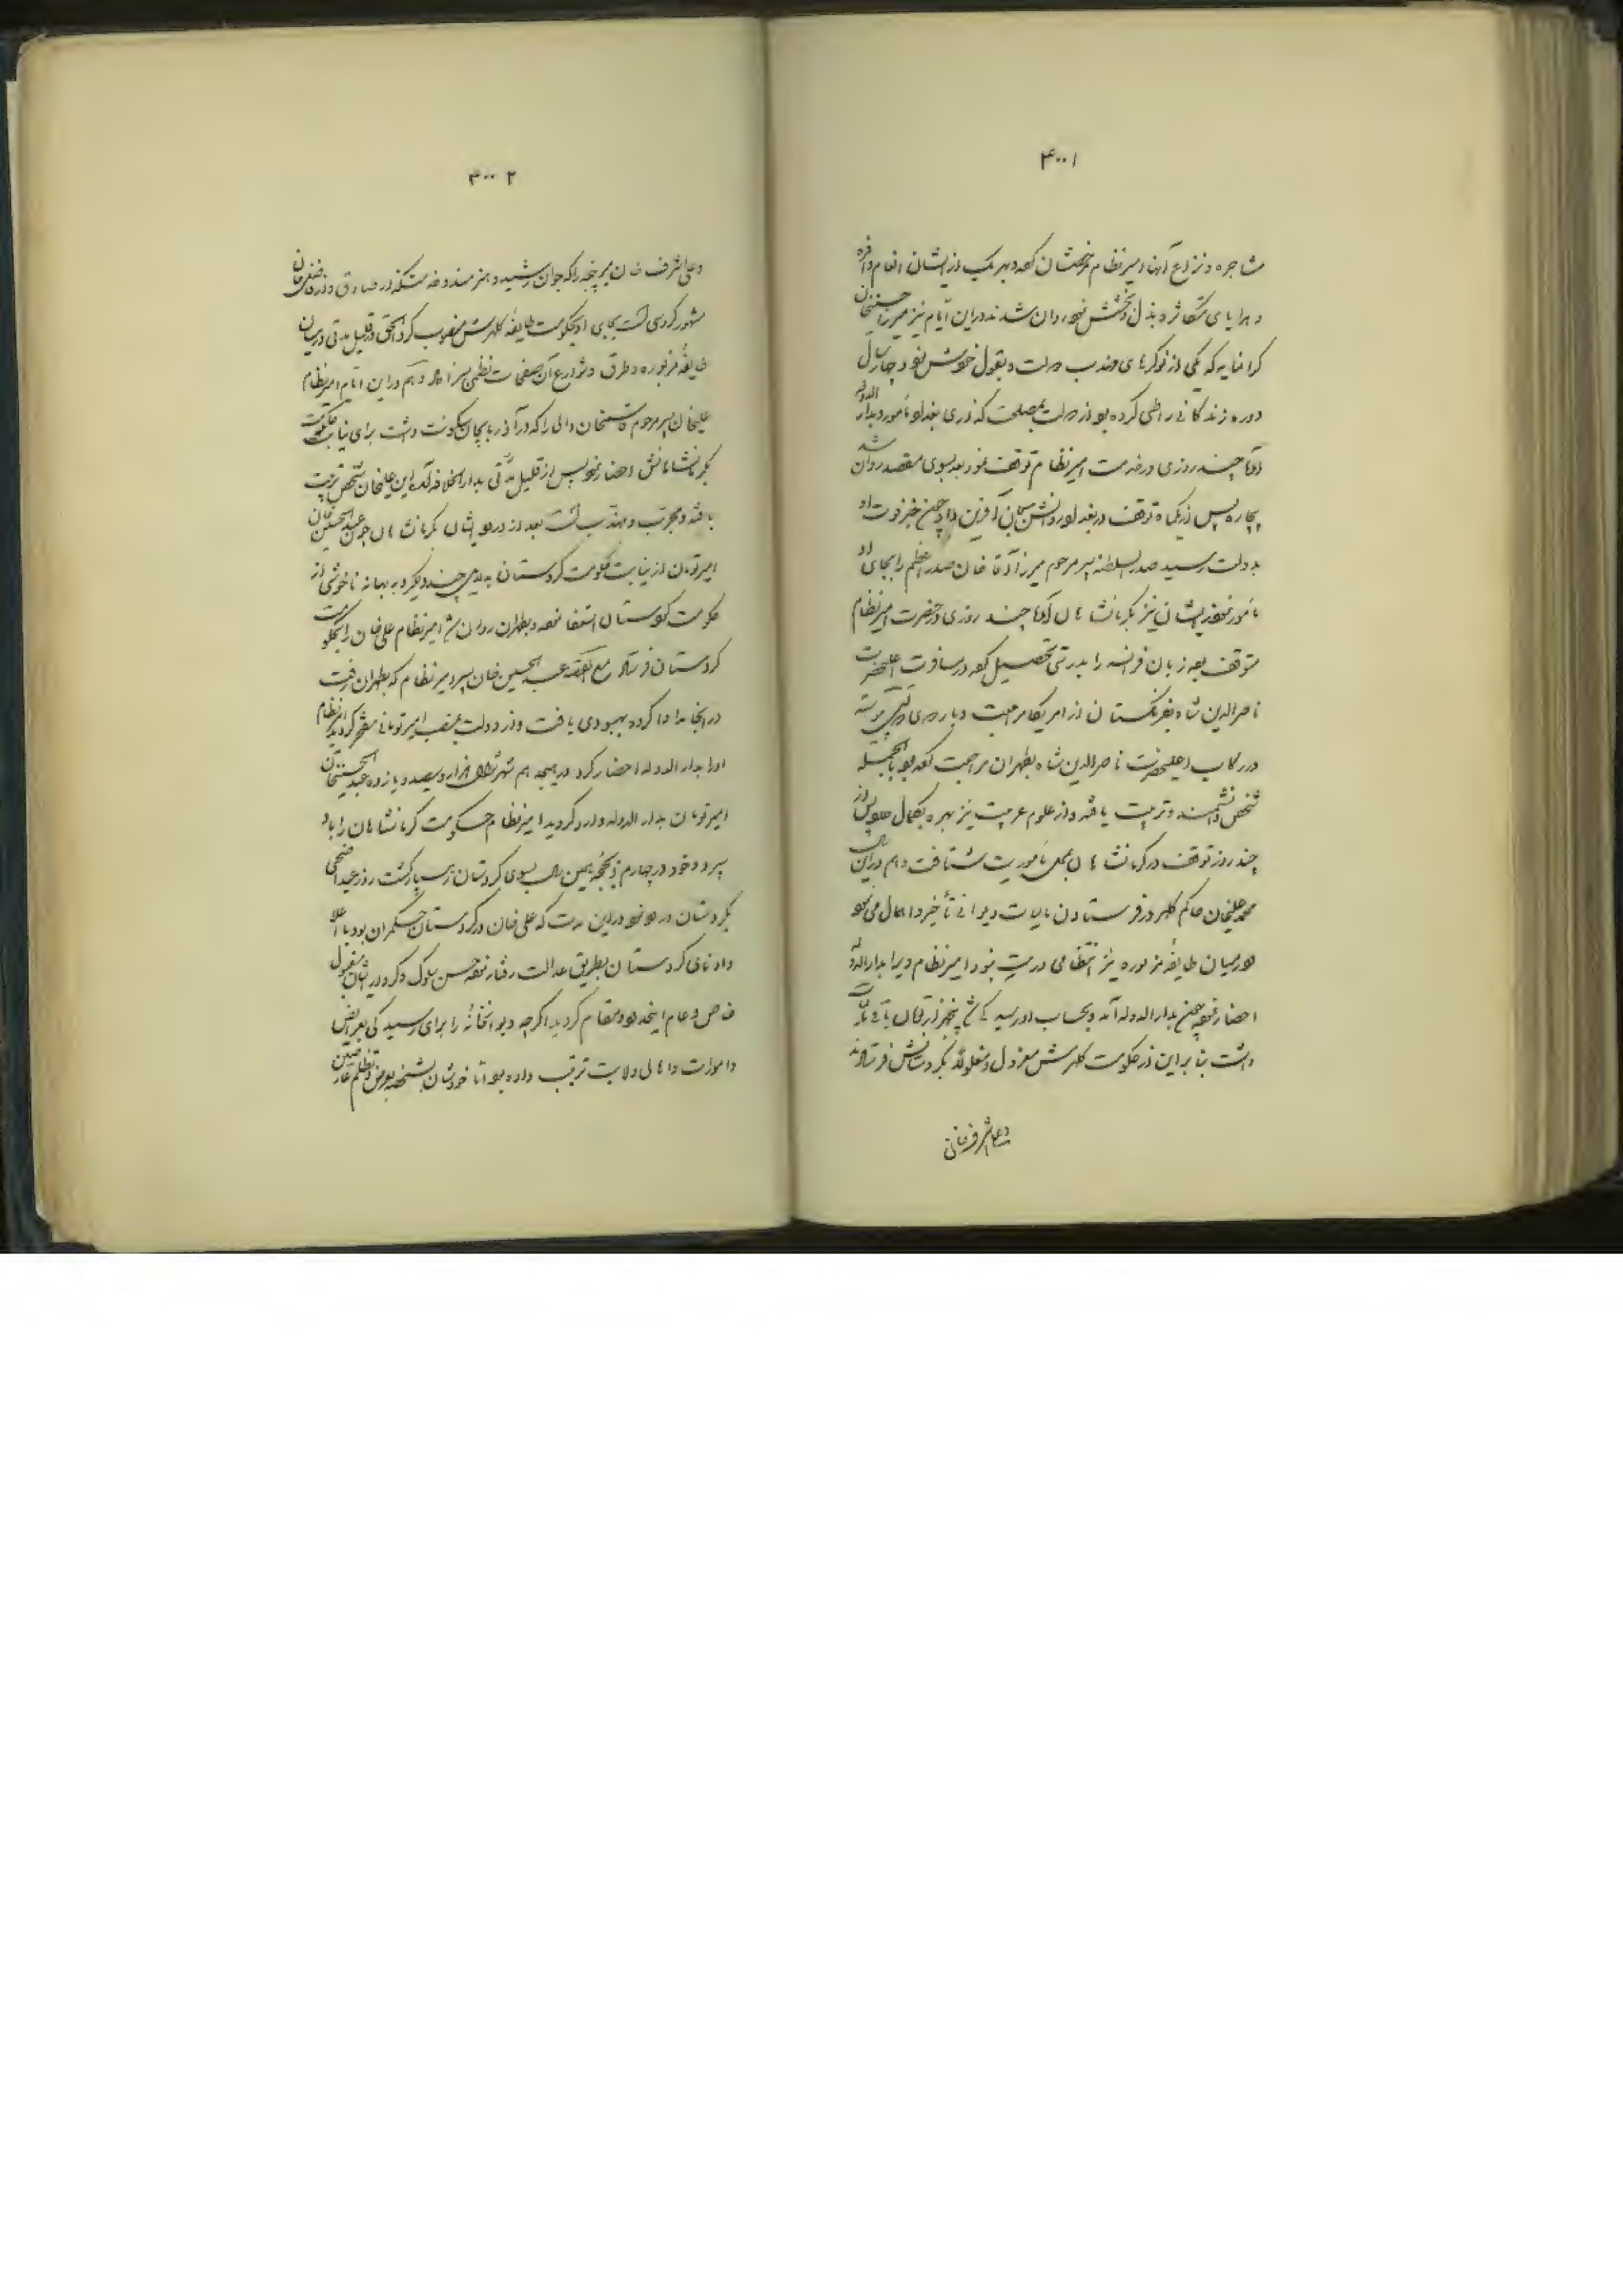 ۴۰۰۱
مشاجره و نزاع آنها امیرنظام مرخصشان کرده و بهر یک از ایشان انعام وافره
و هدایای متکاثره بذل و بخشش نموده روان شدند در این ایام نیز میرزا حسنخان
که یکی از نوکرهای مهذب دولت و بقول خودش چهار سال
دوره زندگانی را طی کرده بود از دولت بمصلحت گذاری بغداد مأمور و بدار الدوله
آمد چند روزی در خدمت امیرنظام توقف نمود بعد بسوی مقصد روان شد
بیچاره پس از یکماه توقف در بغداد روانش بجان آفرین داد چون خبر فوت او
بدولت رسید صدرالسلطنه پسر مرحوم میرزا آقا خان صدر اعظم را بجای او
مأمور نمود ایشان نیز بکرمانشاهان آمد چند روزی در حضرت امیرنظام
متوقف بود زبان فرانسه را بدرستی تحصیل کرده در مسافرت اعلیحضرت
ناصرالدین شاه بفرنگستان از امریکا مراجعت و باردوی پیوسته
در رکاب اعلیحضرت ناصرالدین شاه بطهران مراجعت کرده بود بالجمله
شخص دانشمند و تربیت یافته و از علوم عربیت نیز بهره بکمال پس از
چند روز توقف در کرمانشاهان بمحل مأموریت شتافت و هم در این سال
محمدعلیخان حاکم کلهر در فرستادن مالیات دیوانی تأخیر و اهمال می نمود
در میان طایفه مزبوره نیز انتظامی درست نبود امیرنظام ویرا بدار الدوله
احضار نمود چون بدار الدوله آمد و بحساب او رسیدگی شد پنجهزار تومان باقی
داشت بنابراین از حکومت کلهرش معزول و مغلولاً بکردستانش فرستادند
و علی اشرف خان
۴۰۰۲
و علی اشرف خان سرتیپ را که جوان رشید و هنرمند و خدمتگذار صادق و از
مشهور کردی است بجای او بحکومت طایفه کلهرش منصوب کرد الحق در قلیل مدتی در میان
طایفه مزبوره و طرق و شوارع آن صفحات نظمی بسزا داد و هم در این ایام امیرنظام
علیخان پسر مرحوم خان والی را که در آذربایجان سکونت داشت برای نیابت حکومت
بکرمانشاهانش احضار نمود پس از قلیل مدتی بدار الخلافه آمد این علیخان شخص تربیت
یافته و مجرب و مهذب است بعد از ورود ایشان بکرمانشاهان چون عبدالحسین خان
امیرتومان از نیابت حکومت کردستان چند دیگر و به بهانه ناخوشی از
حکومت کردستان استعفا نموده و بطهران روان شد امیرنظام علیخان را بحکومت
کردستان فرستاد مع القصه عبدالحسین خان پسر امیرنظام که بطهران رفت
در آنجا مداوا کرده بهبودی یافت و از دولت بمنصب امیرتومانی مفتخر گردید امیرنظام
او را بدار الدوله احضار کرد در هیجدهم شهر شوال هزار و سیصد و یازده عبدالحسینخان
امیرتومان بدار الدوله وارد گردید امیرنظام حکومت کرمانشاهان را باو
سپرد و خود در چهارم ذیحجه همین سال بسوی کردستان رهسپار گشت روز عید اضحی
بکردستان ورود نمود در این مدت که علیخان در کردستان حکمران بود با اعلا
و ادنای کردستان بطریق عدالت رفتار نموده حسن سلوک او در ایشان مقبول
خاص و عام اینحدود و مقام گردید اگرچه دیوانخانه را برای رسیدگی بعرایض
و امورات و اهالی ولایت ترتیب داده بود اما خودشان بشخصه بعرض و تظلم عارضین